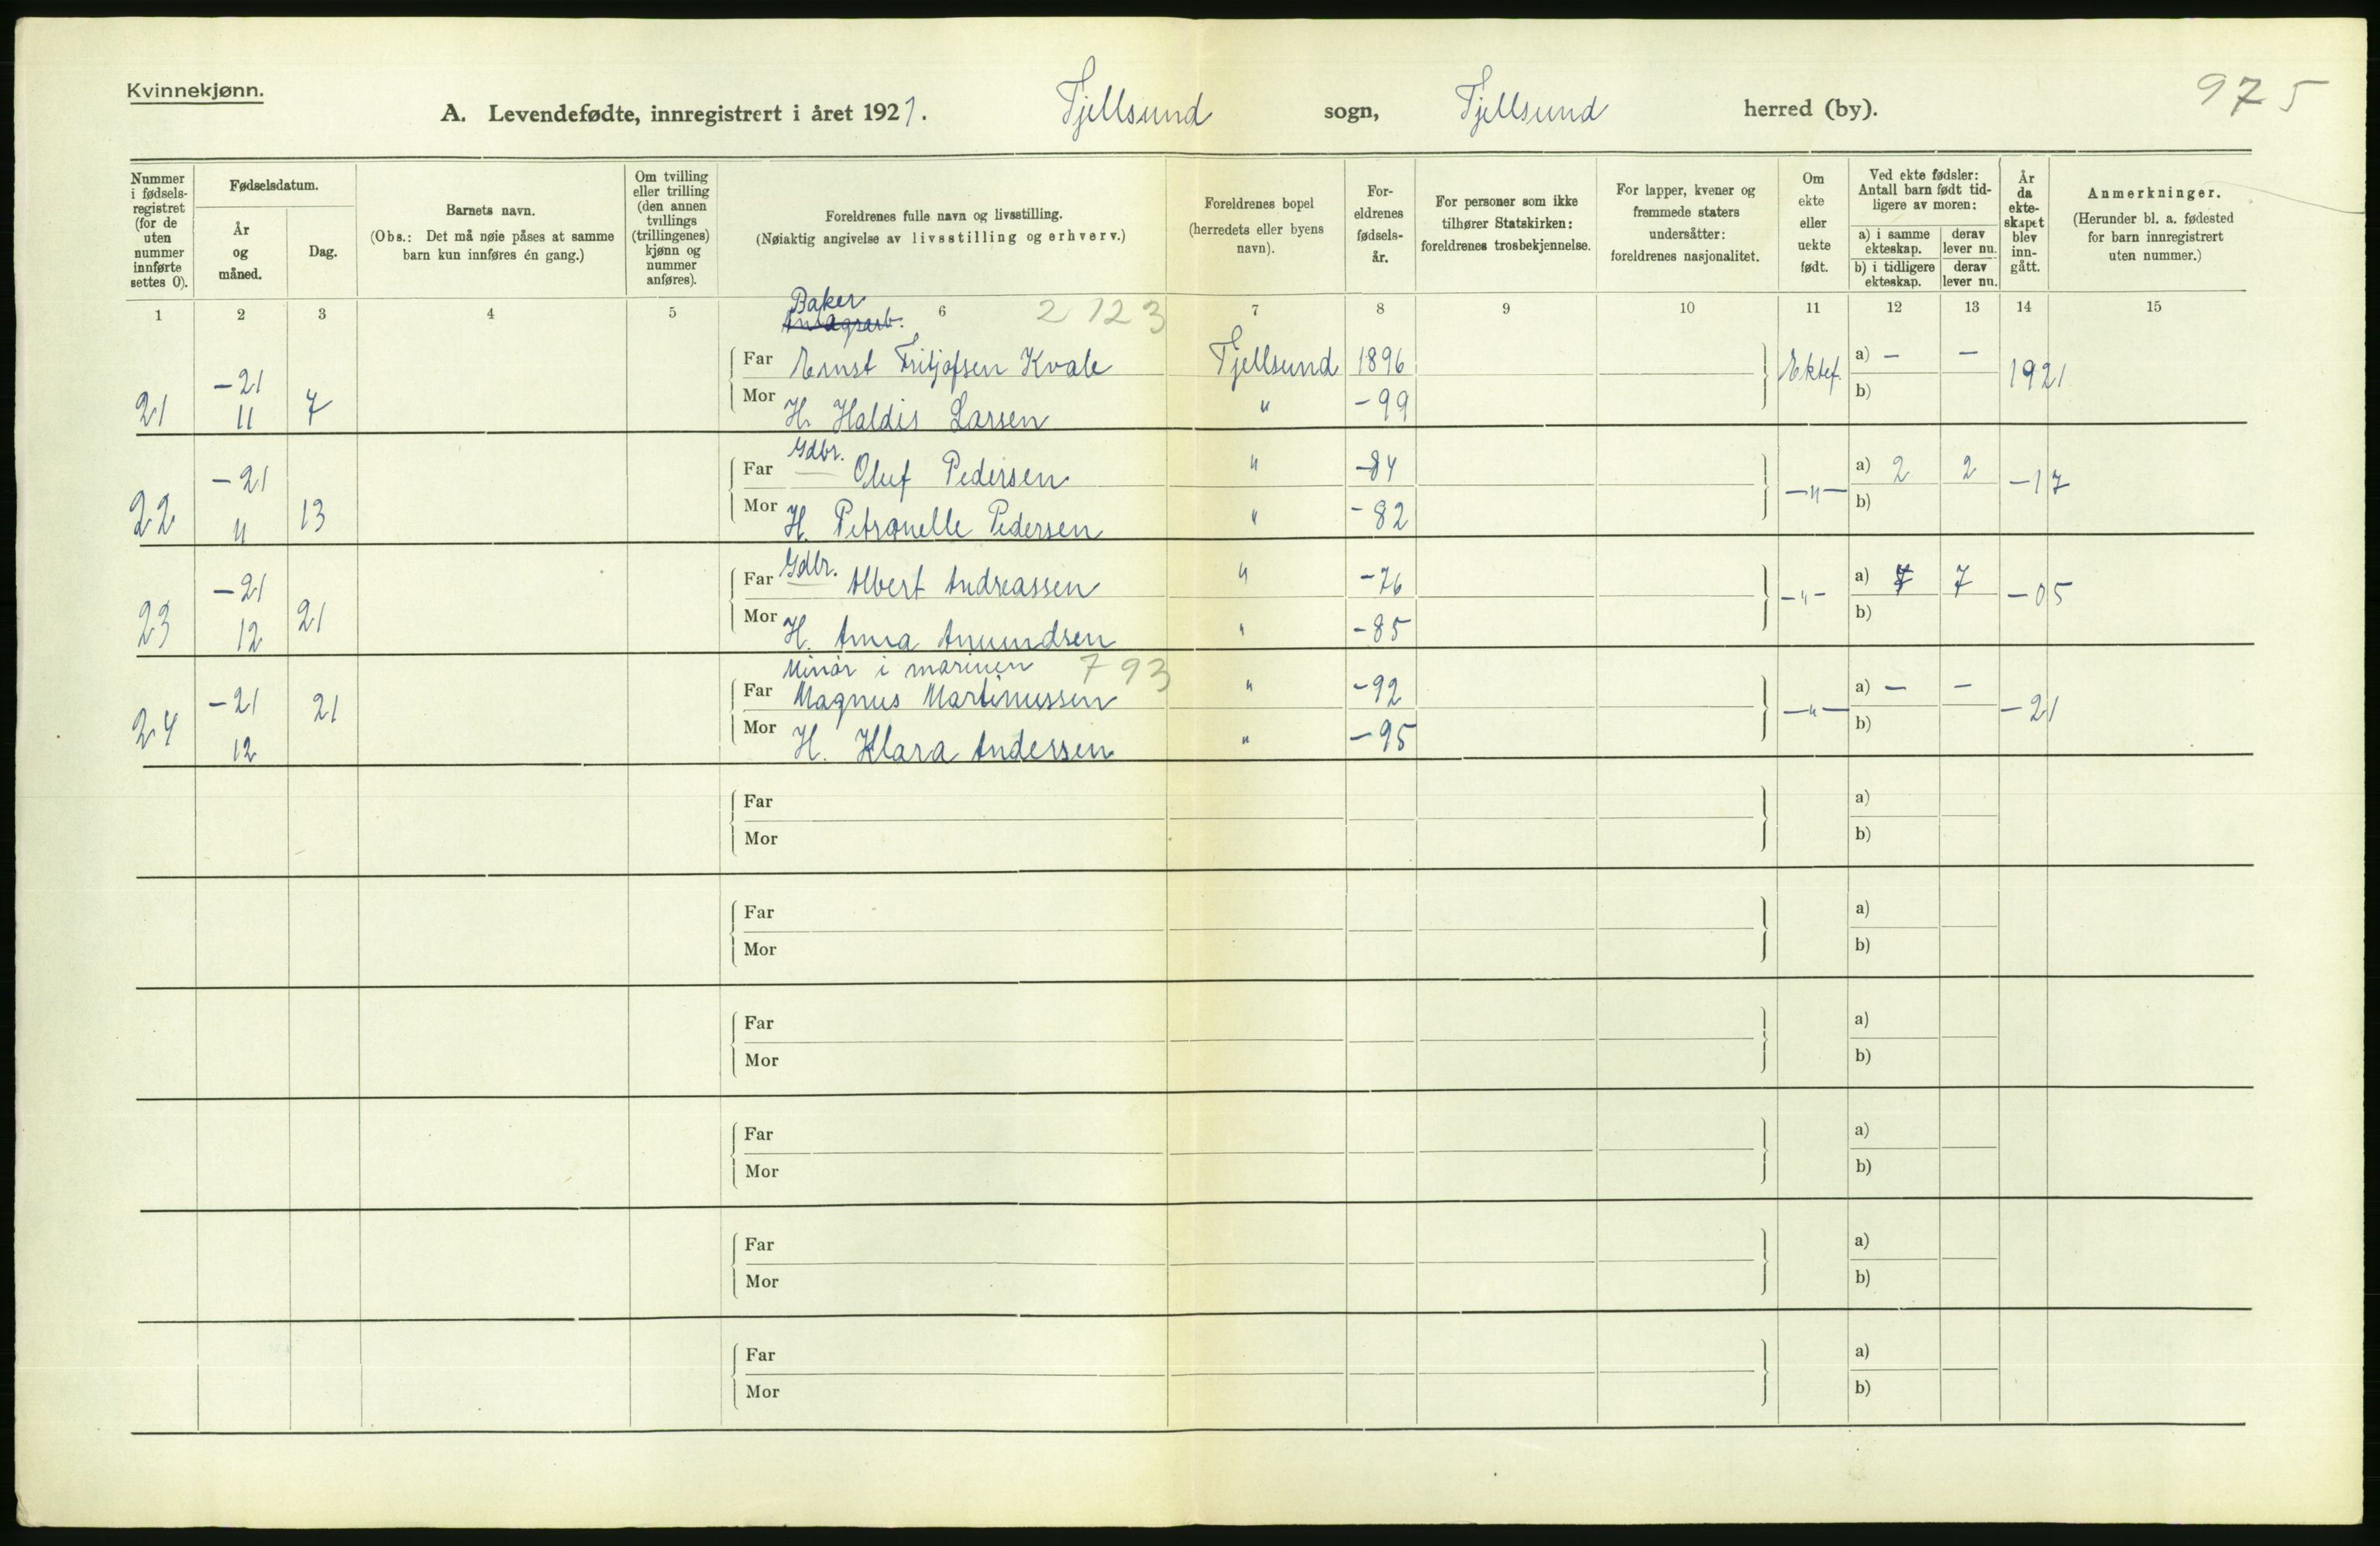 Kvinnekjønn.
A. Levendefødte, innregistrert i året 1921. Fjellsund sogn, Fjellsund herred (by).
975
Nummer i fødselsregistret (for de uten nummer innførte settes 0).
Fødselsdatum.
År og måned.
Dag.
Barnets navn.
(Obs.: Det må nøie påses at samme barn kun innføres én gang.)
Om tvilling eller trilling (den annen tvillings (trillingenes) kjønn og nummer anføres).
Foreldrenes fulle navn og livsstilling.
(Nøiaktig angivelse av livsstilling og erhverv.)
Foreldrenes bopel (herredets eller byens navn).
Foreldrenes fødselsår.
For personer som ikke tilhører Statskirken: foreldrenes trosbekjennelse.
For lapper, kvener og fremmede staters undersåtter: foreldrenes nasjonalitet.
Om ekte eller uekte født.
Ved ekte fødsler: Antall barn født tidligere av moren:
a) i samme ekteskap. derav lever nu.
b) i tidligere ekteskap. derav lever nu.
År da ekteskapet blev inngått.
Anmerkninger.
(Herunder bl. a. fødested for barn innregistrert uten nummer.)
1 2 3 4 5 6 7 8 9 10 11 12 13 14 15
Baker 2 123
21 -21 11 7 Far Ernst Fritjofsen Kvale Fjellsund 1896 Ektef. a) – – 1921
Mor H. Haldis Larsen " -99 b)
Gdbr.
22 -21 11 13 Far Oluf Pedersen " -84 -"- a) 2 2 -17
Mor H. Petronelle Pedersen " -82 b)
Gdbr.
23 -21 12 21 Far Albert Andreassen " -76 -"- a) 7 7 -05
Mor H. Anna Amundsen " -85 b)
Minør i marinen 793
24 -21 12 21 Far Magnus Martinussen " -92 -"- a) – – -21
Mor H. Klara Andersen " -95 b)
Far a)
Mor b)
Far a)
Mor b)
Far a)
Mor b)
Far a)
Mor b)
Far a)
Mor b)
Far a)
Mor b)